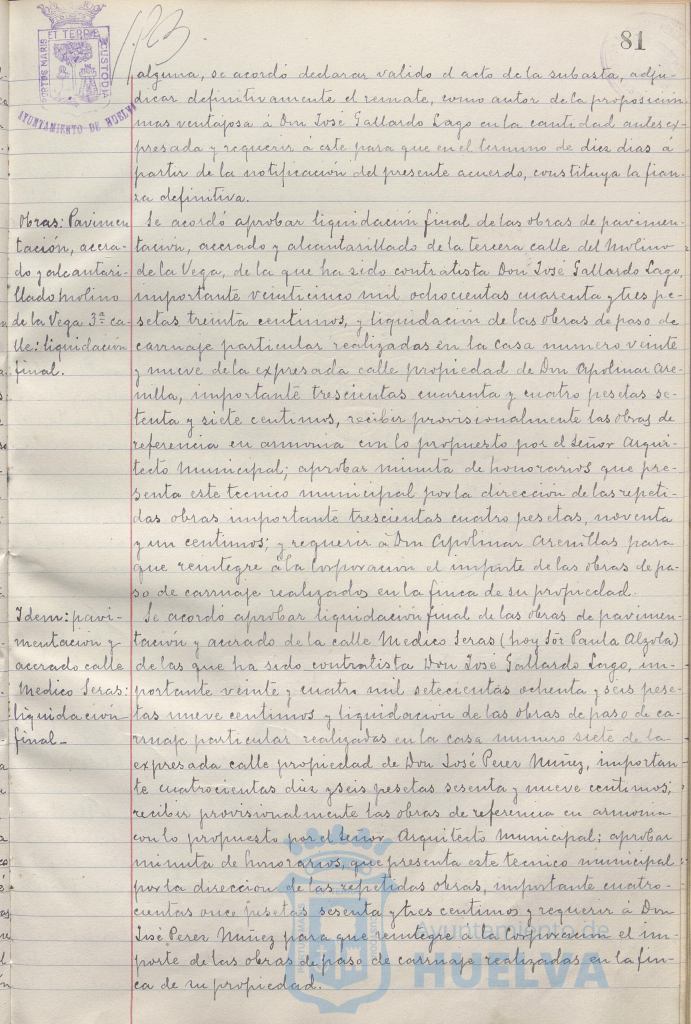 PORTUS MARIS ET TERRÆ CUSTODIA
AYUNTAMIENTO DE HUELVA
81
alguna, se acordó declarar valido el acto de la subasta, adju-
dicar definitivamente el remate, como autor de la proposición
mas ventajosa á Don José Gallardo Lago en la cantidad antes ex-
presada y requerir á este para que en el termino de diez dias á
partir de la notificación del presente acuerdo, constituya la fian-
za definitiva.
Obras: Pavimen-
tación, acera-
do y alcantari-
llado molino
de la Vega 3ª ca-
lle: liquidación
final.
Se acordó aprobar liquidación final de las obras de pavimen-
tación, acerado y alcantarillado de la tercera calle del Molino
de la Vega, de la que ha sido contratista Don José Gallardo Lago,
importante veinticinco mil ochocientas cuarenta y tres pe-
setas treinta centimos, y liquidación de las obras de paso de
carruaje particular realizadas en la casa numero veinte
y nueve de la expresada calle propiedad de Don Apolinar Are-
nilla, importante trescientas cuarenta y cuatro pesetas se-
tenta y siete centimos, recibir provisionalmente las obras de
referencia en armonia con lo propuesto por el Señor Arqui-
tecto Municipal; aprobar minuta de honorarios que pre-
senta este tecnico municipal por la dirección de las repeti-
das obras importante trescientas cuatro pesetas, noventa
y un centimos; y requerir á Don Apolinar Arenillas para
que reintegre á la Corporacion el importe de las obras de pa-
so de carruaje realizados en la finca de su propiedad.
Idem: pavi-
mentacion y
acerado calle
Medico Seras:
liquidación
final.
Se acordó aprobar liquidación final de las obras de pavimen-
tación y acerado de la calle Medico Seras (hoy Sor Paula Alzola)
de las que ha sido contratista Don José Gallardo Lago, im-
portante veinte y cuatro mil setecientas ochenta y seis pese-
tas nueve centimos y liquidacion de las obras de paso de ca-
rruaje particular realizadas en la casa numero siete de la
expresada calle propiedad de Don José Perez Nuñez, importan-
te cuatrocientas diez y seis pesetas sesenta y nueve centimos;
recibir provisionalmente las obras de referencia en armonia
con lo propuesto por el Señor Arquitecto Municipal; aprobar
minuta de honorarios, que presenta este tecnico municipal
por la direccion de las repetidas obras, importante cuatro-
cientas once pesetas sesenta y tres centimos y requerir á Don
José Perez Nuñez para que reintegre á la Corporacion el im-
porte de las obras de paso de carruaje realizados en la fin-
ca de su propiedad.
Ayuntamiento de
HUELVA